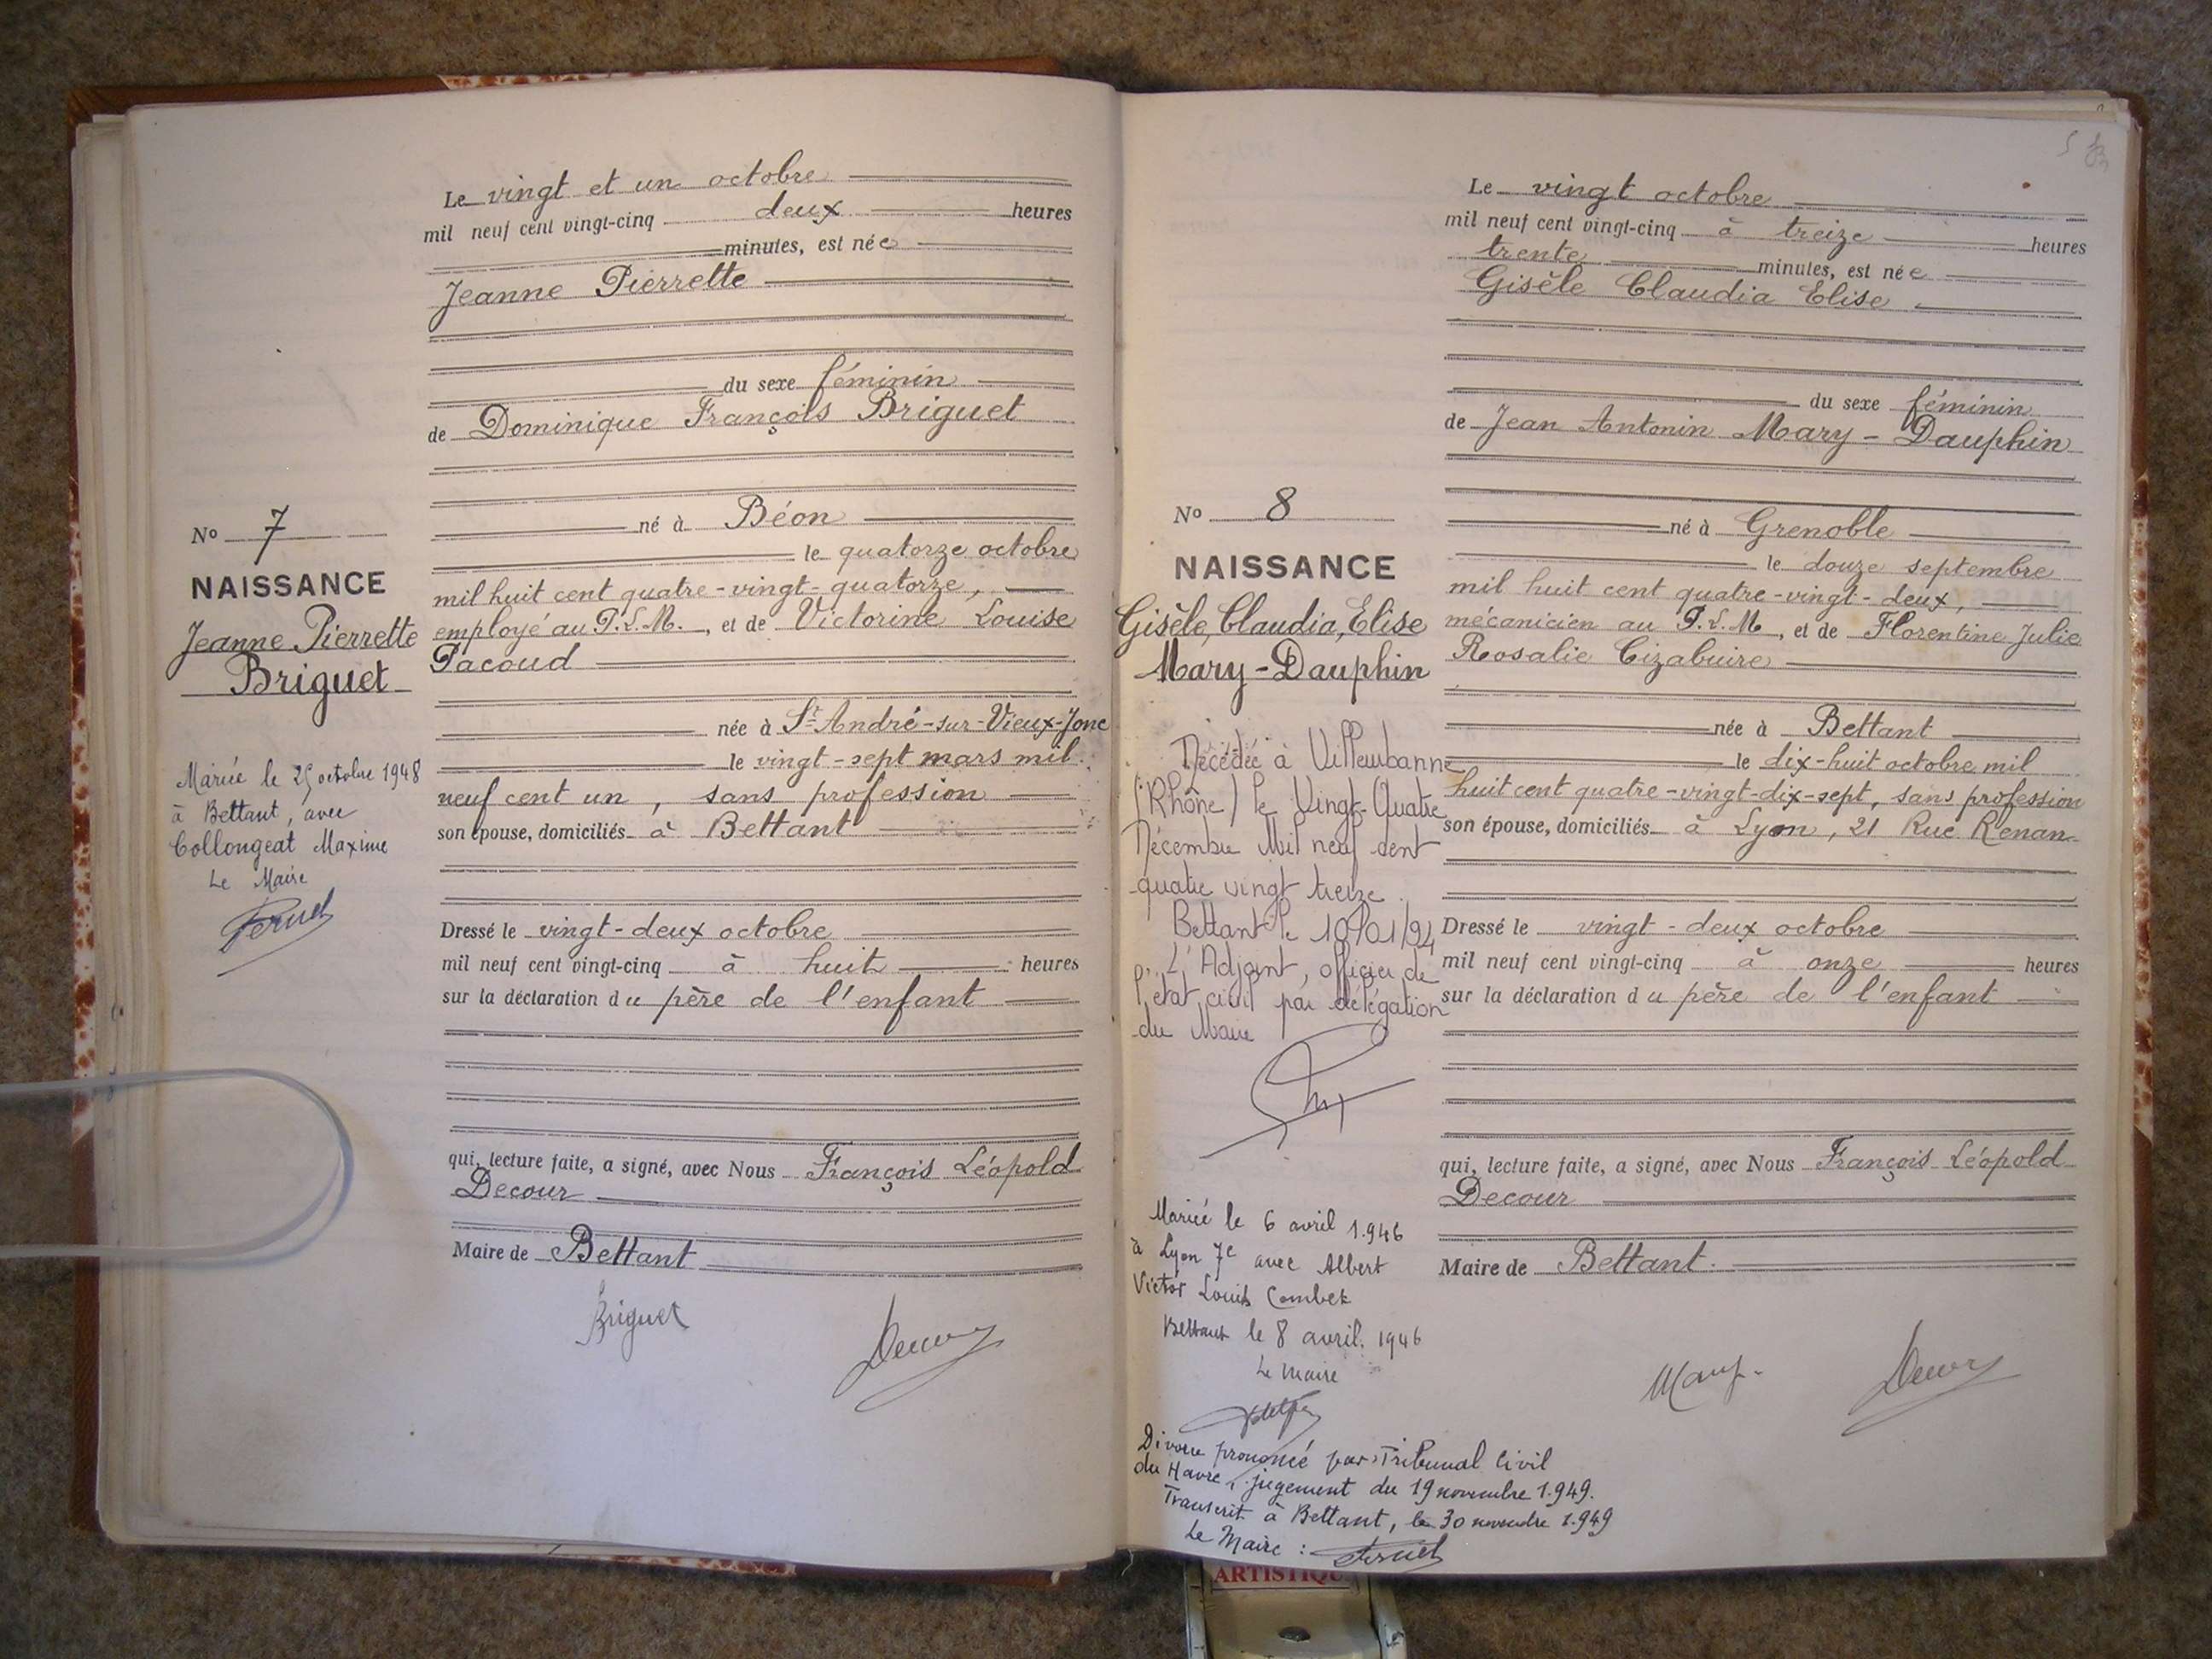 Le vingt et un octobre
mil neuf cent vingt-cinq deux heures
minutes, est née
Jeanne Pierrette
du sexe féminin
de Dominique François Briguet
né à Béon
le quatorze octobre
mil huit cent quatre-vingt-quatorze,
employé au P.L.M., et de Victorine Louise
Pacoud
née à St André-sur-Vieux-Jonc
le vingt-sept mars mil
neuf cent un, sans profession
son épouse, domiciliés à Bettant
Dressé le vingt-deux octobre
mil neuf cent vingt-cinq à huit heures
sur la déclaration du père de l'enfant
qui, lecture faite, a signé, avec Nous François Léopold
Decour
Maire de Bettant
Briguet
No 7
NAISSANCE
Jeanne Pierrette
Briguet
Mariée le octobre 1948
à Bettant, avec
Collongeat Maxime
Le Maire
Le vingt octobre
mil neuf cent vingt-cinq à treize heures
trente minutes, est née
Gisèle Claudia Elise
du sexe féminin
de Jean Antonin Mary-Dauphin
né à Grenoble
le douze septembre
mil huit cent quatre-vingt-deux,
mécanicien au P.L.M, et de Florentine Julie
Rosalie Cizabuire
née à Bettant
le dix-huit octobre mil
huit cent quatre-vingt-dix-sept, sans profession
son épouse, domiciliés à Lyon, 21 Rue Renan
Dressé le vingt-deux octobre
mil neuf cent vingt-cinq à onze heures
sur la déclaration du père de l'enfant
qui, lecture faite, a signé, avec Nous François Léopold
Decour
Maire de Bettant.
No 8
NAISSANCE
Gisèle, Claudia, Elise
Mary-Dauphin
Décédée à Villeurbanne
(Rhône) le Vingt-Quatre
Décembre Mil neuf cent
quatre vingt treize.
Bettant le 10/01/94
p. L'Adjoint, officier de
l'etat civil par délégation
du Maire
Mariée le 6 avril 1.946
à Lyon 7e avec Albert
Victor Louis Combet
Bettant le 8 avril. 1946
Le maire
Divorce prononcé par Tribunal Civil
du Havre, jugement du 19 novembre 1.949.
Transcrit à Bettant, le 30 novembre 1.949
Le Maire :
ARTISTIQU